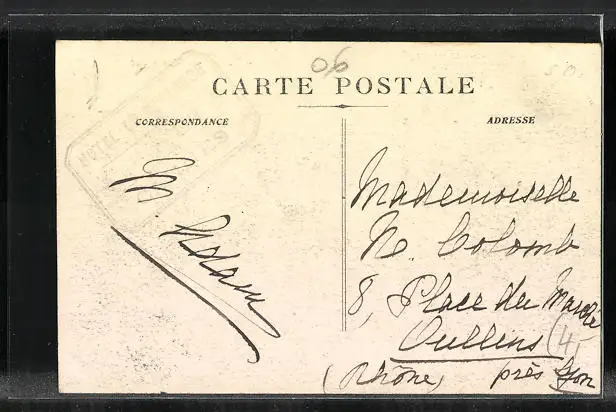 06
CARTE POSTALE
CORRESPONDANCE
ADRESSE
M. Adam
Mademoiselle
N. Colomb
8, Place du Marché
Oullins (4-
(Rhône) près Lyon